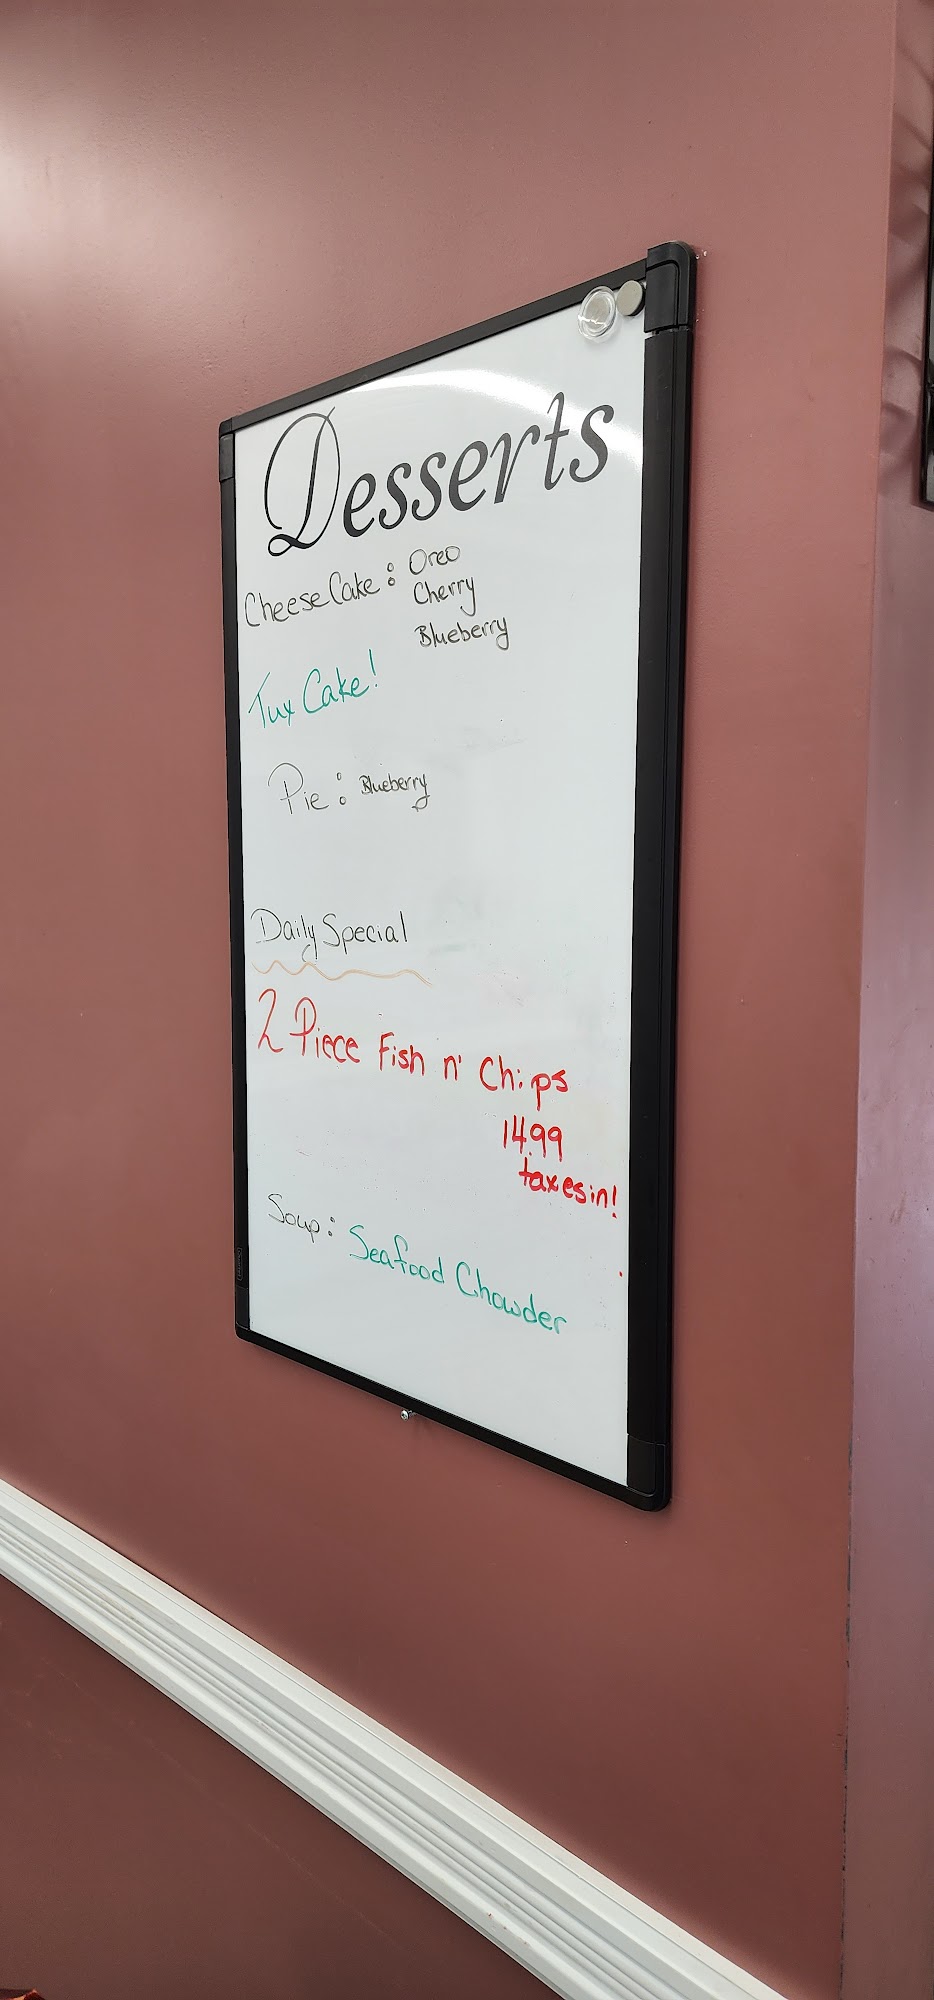 Desserts
CheeseCake: Oreo
Cherry
Blueberry
Tux Cake!
Pie: Blueberry
Daily Special
2 Piece Fish n' Chips
14.99
taxes in!
Soup: Seafood Chowder